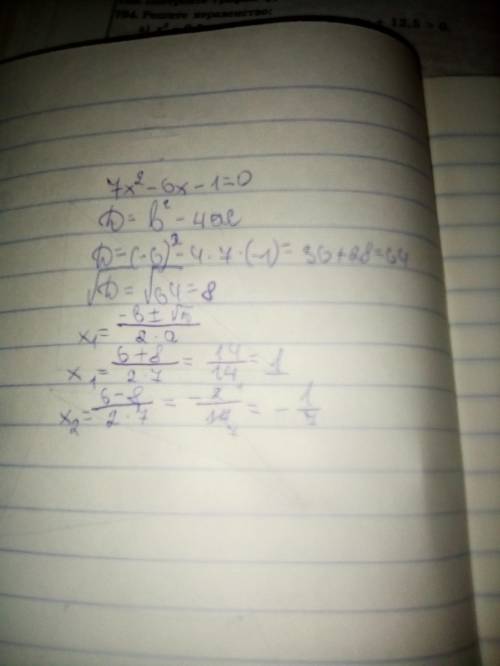 794. Решите неравенство:
+ 12,5 > 0.
7x² - 6x - 1 = 0
D = b² - 4ac
D = (-6)² - 4 · 7 · (-1) = 36 + 28 = 64
√D = √64 = 8
x₁ = (-b ± √D) / (2 · a)
x₁ = (6 + 8) / (2 · 7) = 14/14 = 1
x₂ = (6 - 8) / (2 · 7) = - 2/14 = - 1/7